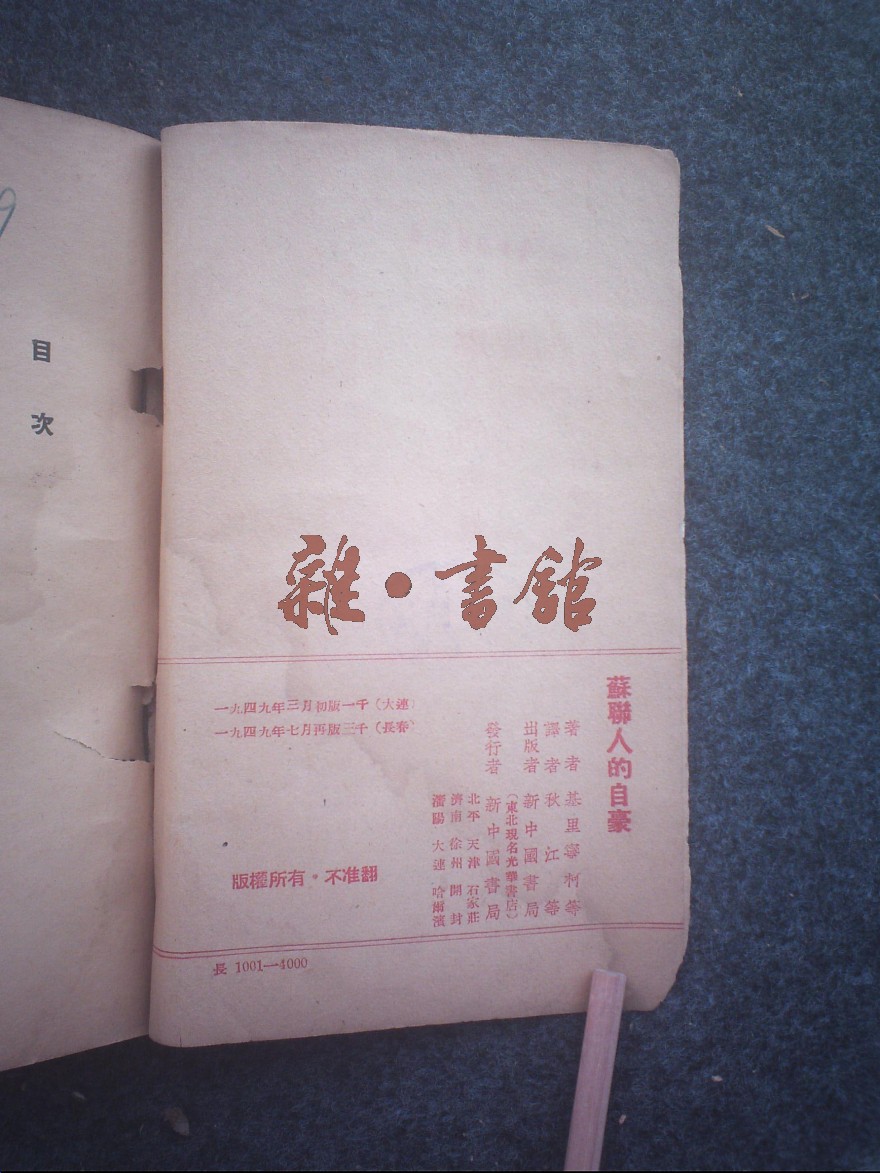 目次
雜·書館
蘇聯人的自豪
著者 基里寧柯等
譯者 秋江等
出版者 新中國書局
(東北現名光華書店)
發行者 新中國書局
北平 天津 石家莊
濟南 徐州 開封
瀋陽 大連 哈爾濱
一九四九年三月初版一千(大連)
一九四九年七月再版三千(長春)
版權所有。不准翻
長 1001—4000